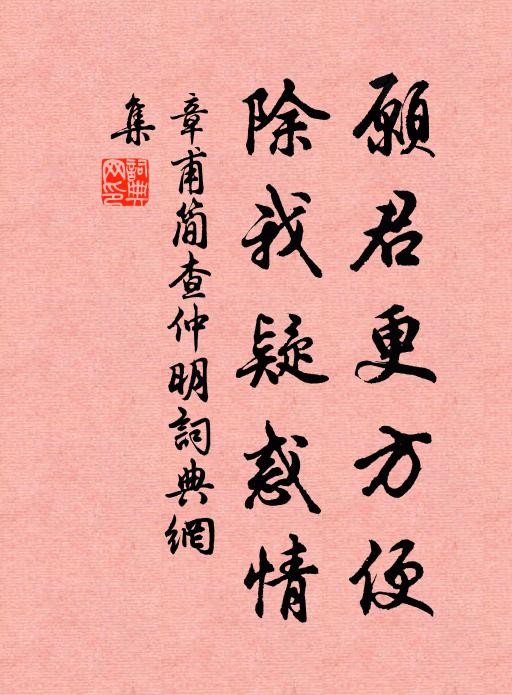 願君更方便
除我疑惑情
章甫简查仲明詞典網
集
詞典
网印